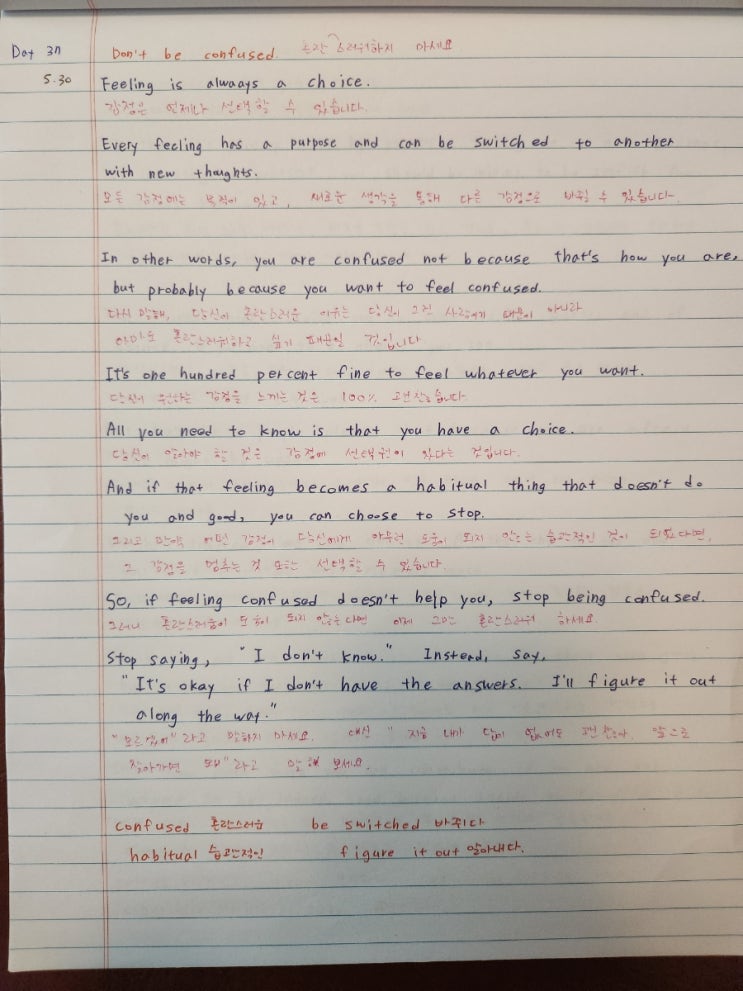 Day 37 Don't be confused. 혼란스러워하지 마세요
5.30 Feeling is alwaays a choice.
감정은 언제나 선택할 수 있습니다.
Every feeling has a purpose and can be switched to another
with new thoughts.
모든 감정에는 목적이 있고, 새로운 생각을 통해 다른 감정으로 바뀔 수 있습니다.
In other words, you are confused not because that's how you are,
but probably because you want to feel confused.
다시 말해, 당신이 혼란스러운 이유는 당신이 그런 사람이기 때문이 아니라
아마도 혼란스러워하고 싶기 때문일 것입니다
It's one hundred percent fine to feel whatever you want.
당신이 원하는 감정을 느끼는 것은 100% 괜찮습니다.
All you need to know is that you have a choice.
당신이 알아야 할 것은 감정에 선택권이 있다는 것입니다.
And if that feeling becomes a habitual thing that doesn't do
you and good, you can choose to stop.
그리고 만약 어떤 감정이 당신에게 아무런 도움이 되지 않는 습관적인 것이 되었다면,
그 감정을 멈추는 것 또한 선택할 수 있습니다.
So, if feeling confused doesn't help you, stop being confused.
그러니 혼란스러움이 도움이 되지 않는다면 이제 그만 혼란스러워 하세요.
Stop saying, "I don't know." Instead, say,
"It's okay if I don't have the answers. I'll figure it out
along the way."
"모르겠어"라고 말하지 마세요. 대신 "지금 내가 답이 없어도 괜찮아. 앞으로
찾아가면 돼"라고 말해 보세요.
confused 혼란스러운 be switched 바뀌다
habitual 습관적인 figure it out 알아내다.